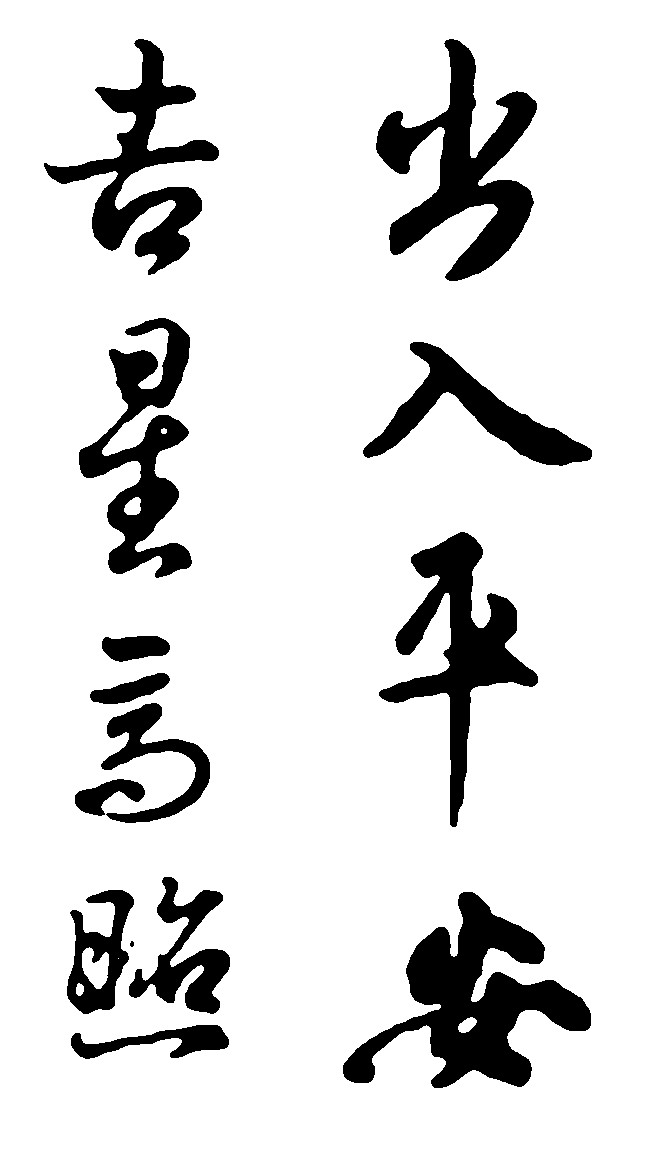 出入平安
吉星高照